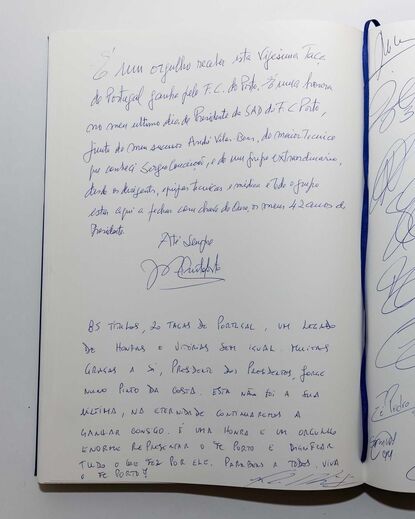 É um orgulho receber esta Vigésima Taça
de Portugal ganha pelo F.C. do Porto. É uma honra
no meu último dia, de Presidente da SAD do F.C Porto,
junto do meu sucessor André Villas-Boas, do maior Tecnico
que conheci Sergio Conceição, e de um grupo extraordinario,
desde os dirigentes, equipas tecnicas e médica e todo o grupo
estar aqui a fechar com chave de Ouro, os meus 42 anos de
Presidente.
Até Sempre
85 TÍTULOS, 20 TAÇAS DE PORTUGAL, UM LEGADO
DE HONRAS E VITÓRIAS SEM IGUAL. MUITAS
GRAÇAS A SI, PRESIDENTE DOS PRESIDENTES, JORGE
NUNO PINTO DA COSTA. ESTA NÃO FOI A SUA
ÚLTIMA, NA ETERNIDADE CONTINUAREMOS A
GANHAR CONSIGO. É UMA HONRA E UM ORGULHO
ENORME REPRESENTAR O FC PORTO E DIGNIFICAR
TUDO O QUE FEZ POR ELE. PARABÉNS A TODOS. VIVA
O FC PORTO!
Zé Pedro